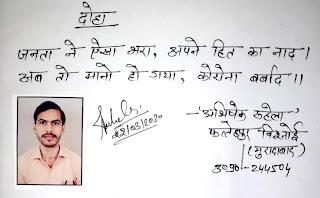 दोहा
जनता ने ऐसा भरा, अपने हित का नाद।
अब तो मानो हो गया, कोरोना बर्बाद।।
22/03/2020
-'अभिषेक रुहेला'
फतेहपुर विश्नोई
(मुरादाबाद)
उ०प्र०-244504